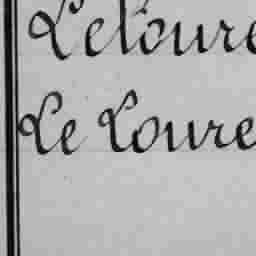 Letoure
Le Loure